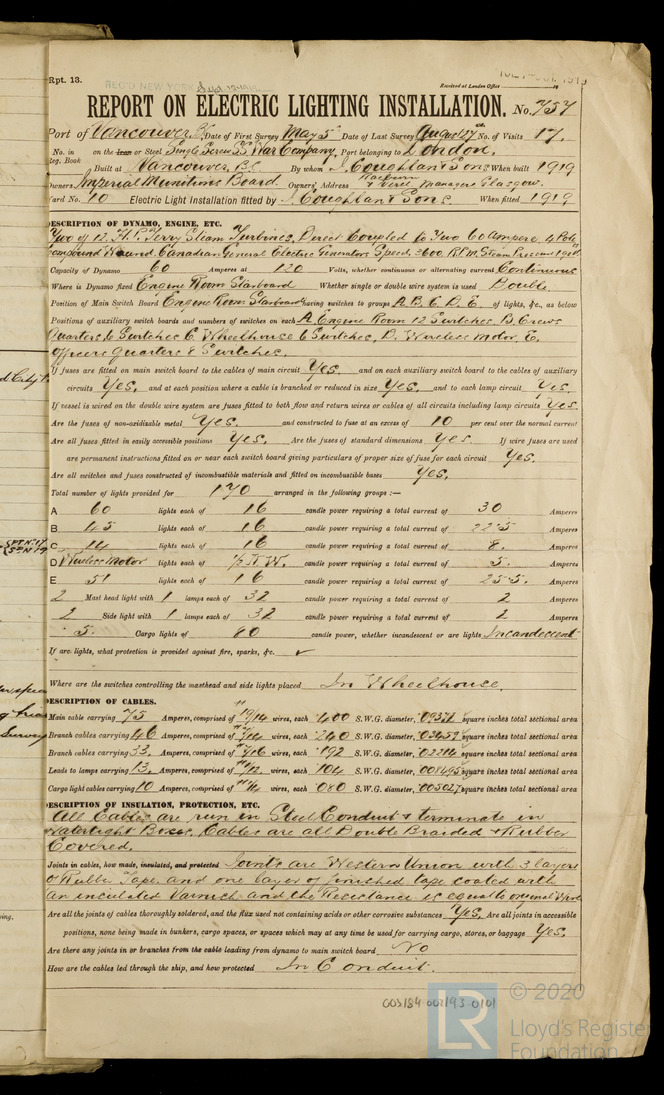 Rpt. 13.
REC'D NEW YORK Sept 12 1919
Received at London Office
REPORT ON ELECTRIC LIGHTING INSTALLATION. No. 757
Port of Vancouver, B.C. Date of First Survey May 5th Date of Last Survey August 27th No. of Visits 17.
No. in Reg. Book on the Iron or Steel Single Screw S.S. War Company Port belonging to London.
Built at Vancouver, B.C. By whom J. Coughlan & Sons When built 1919
Owners Imperial Munitions Board. Owners' Address & Vere Managers Glasgow.
Yard No. 10 Electric Light Installation fitted by J. Coughlan & Sons. When fitted 1919
DESCRIPTION OF DYNAMO, ENGINE, ETC.
Two of 12. H.P. Terry Steam Turbines, Direct Coupled to Two 60 Ampere, 4 Pole
Compound Wound. Canadian General Electric Generators Speed. 3600. R.P.M. Steam Pressure
Capacity of Dynamo 60 Amperes at 120 Volts, whether continuous or alternating current Continuous
Where is Dynamo fixed Engine Room Starboard Whether single or double wire system is used Double
Position of Main Switch Board Engine Room Starboard having switches to groups A. B. C. D. E. of lights, &c., as below
Positions of auxiliary switch boards and numbers of switches on each A. Engine Room 12 Switches, B. Crews
Quarters 6 Switches C. Wheelhouse 6 Switches, D. Wireless Motor, E.
Officers Quarters 8 Switches.
If fuses are fitted on main switch board to the cables of main circuit Yes. and on each auxiliary switch board to the cables of auxiliary
circuits Yes. and at each position where a cable is branched or reduced in size Yes. and to each lamp circuit Yes.
If vessel is wired on the double wire system are fuses fitted to both flow and return wires or cables of all circuits including lamp circuits Yes.
Are the fuses of non-oxidizable metal Yes. and constructed to fuse at an excess of 10 per cent over the normal current
Are all fuses fitted in easily accessible positions Yes. Are the fuses of standard dimensions Yes If wire fuses are used
are permanent instructions fitted on or near each switch board giving particulars of proper size of fuse for each circuit Yes.
Are all switches and fuses constructed of incombustible materials and fitted on incombustible bases Yes.
Total number of lights provided for 170 arranged in the following groups :—
A 60 lights each of 16 candle power requiring a total current of 30 Amperes
B 45 lights each of 16 candle power requiring a total current of 22.5 Amperes
C 14 lights each of 16 candle power requiring a total current of 8. Amperes
D Wireless Motor lights each of 1/2 K.W. candle power requiring a total current of 5. Amperes
E 51 lights each of 16 candle power requiring a total current of 25.5. Amperes
2 Mast head light with 1 lamps each of 32 candle power requiring a total current of 2 Amperes
2 Side light with 1 lamps each of 32 candle power requiring a total current of 2 Amperes
5. Cargo lights of 80 candle power, whether incandescent or arc lights Incandescent
If arc lights, what protection is provided against fire, sparks, &c. ✓
Where are the switches controlling the masthead and side lights placed In Wheelhouse.
DESCRIPTION OF CABLES.
Main cable carrying 75 Amperes, comprised of 19/14 wires, each .400 S.W.G. diameter, .09372 square inches total sectional area
Branch cables carrying 46 Amperes, comprised of 7/14 wires, each .240 S.W.G. diameter, .03452 square inches total sectional area
Branch cables carrying 33. Amperes, comprised of 7/16 wires, each .192 S.W.G. diameter, .02214 square inches total sectional area
Leads to lamps carrying 13. Amperes, comprised of 1/12 wires, each .104 S.W.G. diameter, .008495 square inches total sectional area
Cargo light cables carrying 10 Amperes, comprised of 1/14 wires, each .080 S.W.G. diameter, .005027 square inches total sectional area
DESCRIPTION OF INSULATION, PROTECTION, ETC.
All Cables are run in Steel Conduit & terminate in
Watertight Boxes. Cables are all Double Braided & Rubber
Covered.
Joints in cables, how made, insulated, and protected Joints are Western Union with 3 layers
of Rubber Tape and one layer of finished tape coated with
an insulated Varnish and the Resistance is equal to original
Are all the joints of cables thoroughly soldered, and the flux used not containing acids or other corrosive substances Yes. Are all joints in accessible
positions, none being made in bunkers, cargo spaces, or spaces which may at any time be used for carrying cargo, stores, or baggage Yes.
Are there any joints in or branches from the cable leading from dynamo to main switch board No
How are the cables led through the ship, and how protected In Conduit.
003184-003193-0101
© 2020
LR
Lloyd's Register
Foundation